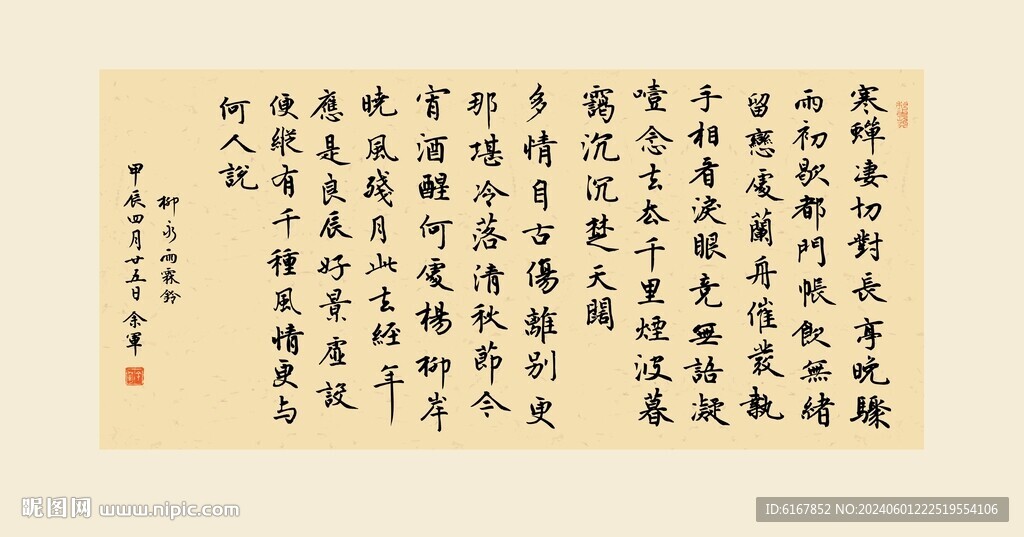 寒蟬凄切對長亭晚驟
雨初歇都門帳飲無緒
留戀處蘭舟催發執
手相看淚眼竟無語凝
噎念去去千里煙波暮
靄沉沉楚天闊
多情自古傷離別更
那堪冷落清秋節今
宵酒醒何處楊柳岸
曉風殘月此去經年
應是良辰好景虛設
便縱有千種風情更与
何人說
柳永雨霖鈴
甲辰四月廿五日余軍
昵图网 www.nipic.com
ID:6167852 NO:20240601222519554106